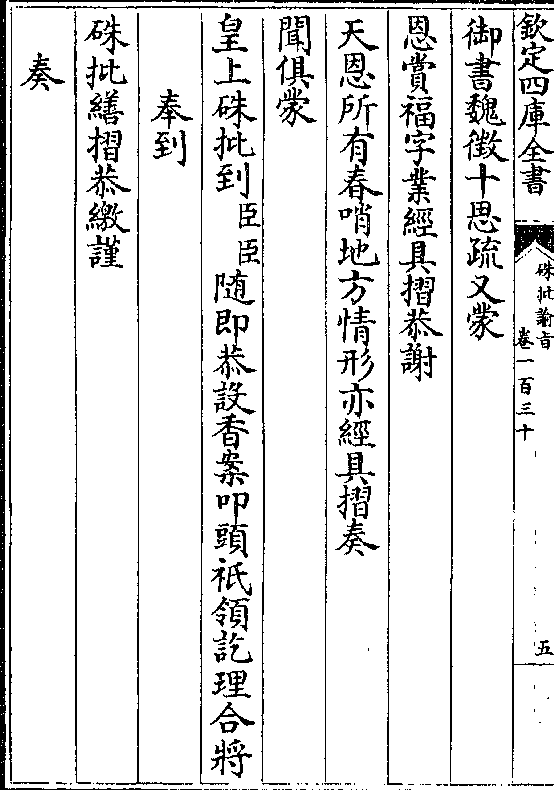 欽定四庫全書
硃批諭旨
卷一百三十
五
御書魏徵十思疏又蒙
恩賞福字業經具摺恭謝
天恩所有春哨地方情形亦經具摺奏
聞俱蒙
皇上硃批到臣臣隨即恭設香案叩頭祇領訖理合將
奉到
硃批繕摺恭繳謹
奏